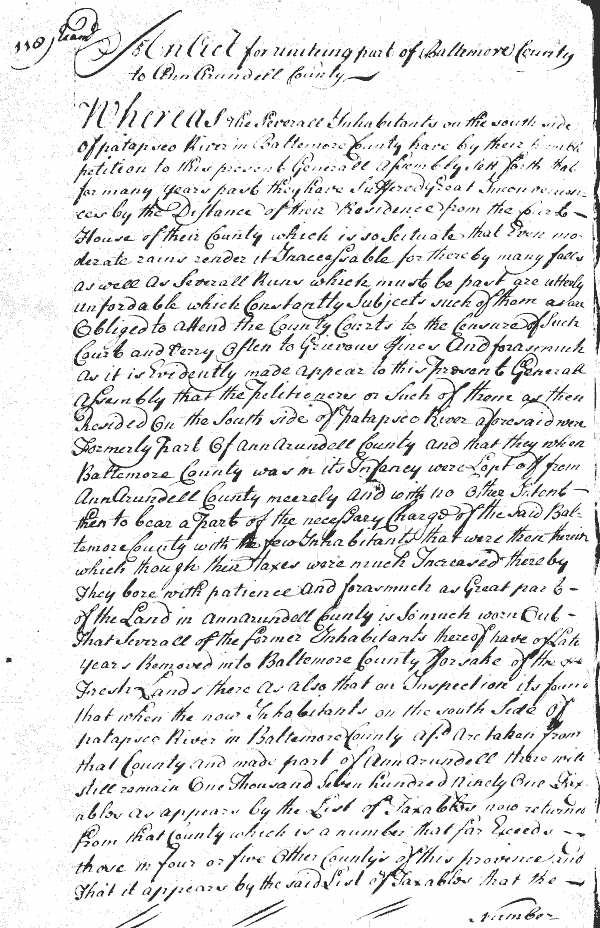 118) Exam.d
An Act for uniteing part of Baltemore County
to Ann Arundell County
Whereas the Severall Inhabitants on the south side
of patapsco River in Baltemore County have by their humble
petition to this present Generall Assembly sett forth that
for many years past they have Suffered Great Inconvenien
ces by the Distance of their Residence from the Court
House of their County which is so Scituate that Even mo-
derate rains render it Inaccessable for thereby many falls
as well as Severall Runs which must be past are utterly
unfordable which Constantly Subjects such of them as are
Obliged to attend the County Courts to the Censure of Such
Court and Verry Often to Grievous fines And forasmuch
as it is Evidently made appear to this Present Generall
Assembly that the petitioners or Such of them as then
Resided On the South side of Patapsco River aforesaid were
Formerly Part Of AnnArundell County and that they when
Baltemore County was in its Infancy were Lopt off from
AnnArundell County meerely And with no Other Intent
then to bear a Part of the necessary Charge of the said Bal-
temore County with the few Inhabitants that were then therein
which though their Taxes were much Increased thereby
They bore with patience And forasmuch as Great part
of the Land in AnnArundell County is so much worn Out
That Severall of the former Inhabitants thereof have of Late
years Removed into Baltemore County for sake of the
Fresh Lands there As also that on Inspection its found
that when the now Inhabitants on the south Side of
patapsco River in Baltemore County afsd. are taken from
that County and made part of AnnArundell there will
still remain One Thousand Seven hundred Ninety One Tax
ables as appears by the List of Taxables now returned
from that County which is a number that far Exceeds
those in four or five Other County's of this province And
That it appears by the said List of Taxables that the
Number